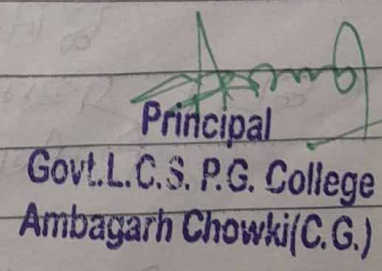 Principal
Govt.L.C.S. P.G. College
Ambagarh Chowki(C.G.)